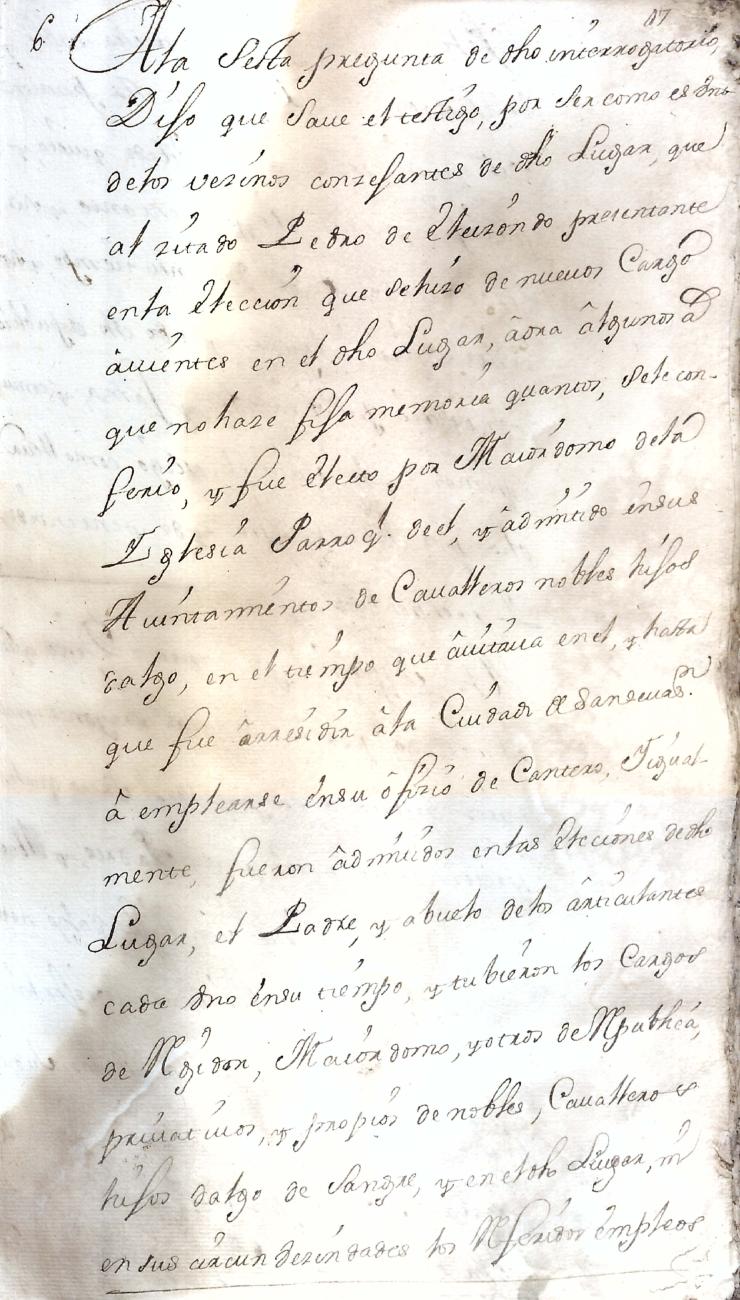 17
6 A la Sesta pregunta de dho interrogatorio,
Dijo que save el testigo, por ser como es vno
delos vezinos conzejantes de dho Lugar, que
al zitado Pedro de Elizondo presentante
enla Elección que sehizo de nuevos Cargo
âuientes en el dho Lugar, âora âlgunos a
que nohaze fija memoria quantos, sele con-
ferio, y fue Electo por Maiordomo dela
Iglesia Parroql. deel, y âdmitido ensus
Auintamientos de Cavalleros nobles hijos
dalgo, en el tiempo que âuitaua enel, y hasta
que fue ârresidir âla Ciudad de Sanguesa.
â emplearse ensu ôfizio de Cantero, Iigual-
mente, fueron âdmitidos enlas Elecciones dedho
Lugar, el Padre, y abuelo delos ârticulantes
cada vno ensu tiempo, y tubieron los Cargos
de Rexidor, Maiordomo, y otros de Republica,
priuatiuos, y propios de nobles, Cavalleros
hijos dalgo de Sangre, y en eldho Lugar, ni
en sus circunvezindades los Referidos empleos